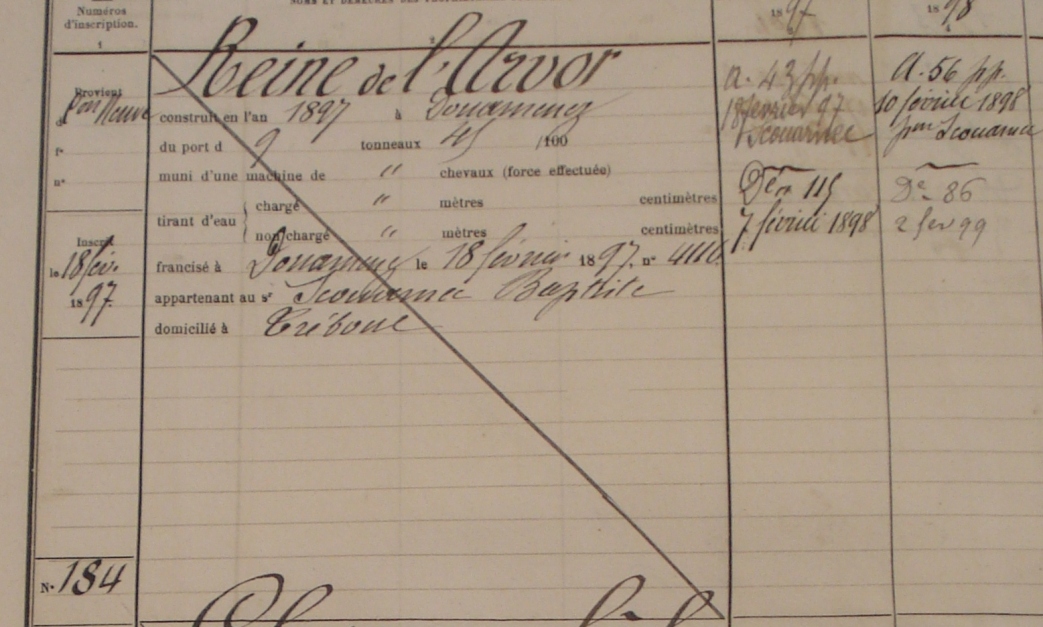 Numéros
d'inscription.
1
1897
3
1898
4
Reine de l'Arvor
Provient
d
f°
n°
construit en l'an 1897 à Douarnenez
du port d 9 tonneaux 45 /100
muni d'une machine de " chevaux (force effectuée)
tirant d'eau
chargé " mètres centimètres
non chargé " mètres centimètres
Inscrit
le 18 fév.
1897
francisé à Douarnenez le 18 février 1897, n° 4116
appartenant au sr Scouarnec Baptiste
domicilié à Tréboul
N° 184
a. 43 pp.
18 février 97
Scouarnec
Dém 115
7 février 1898
A. 56 pp.
10 février 1898
par Scouarnec
De 86
2 fev 99